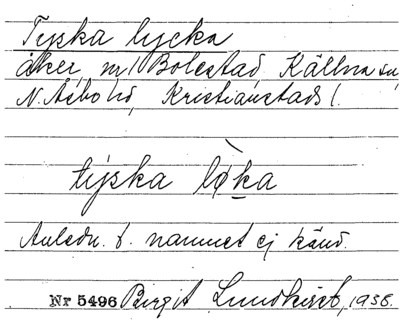 Tyska lycka
åker, nr 1 Bolestad, Källna sn,
N. Åsbo hd, Kristianstads l.
tyska lø̀ka
Anledn. t. namnet ej känd.
Nr 5496 Birgit Lundkvist, 1938.